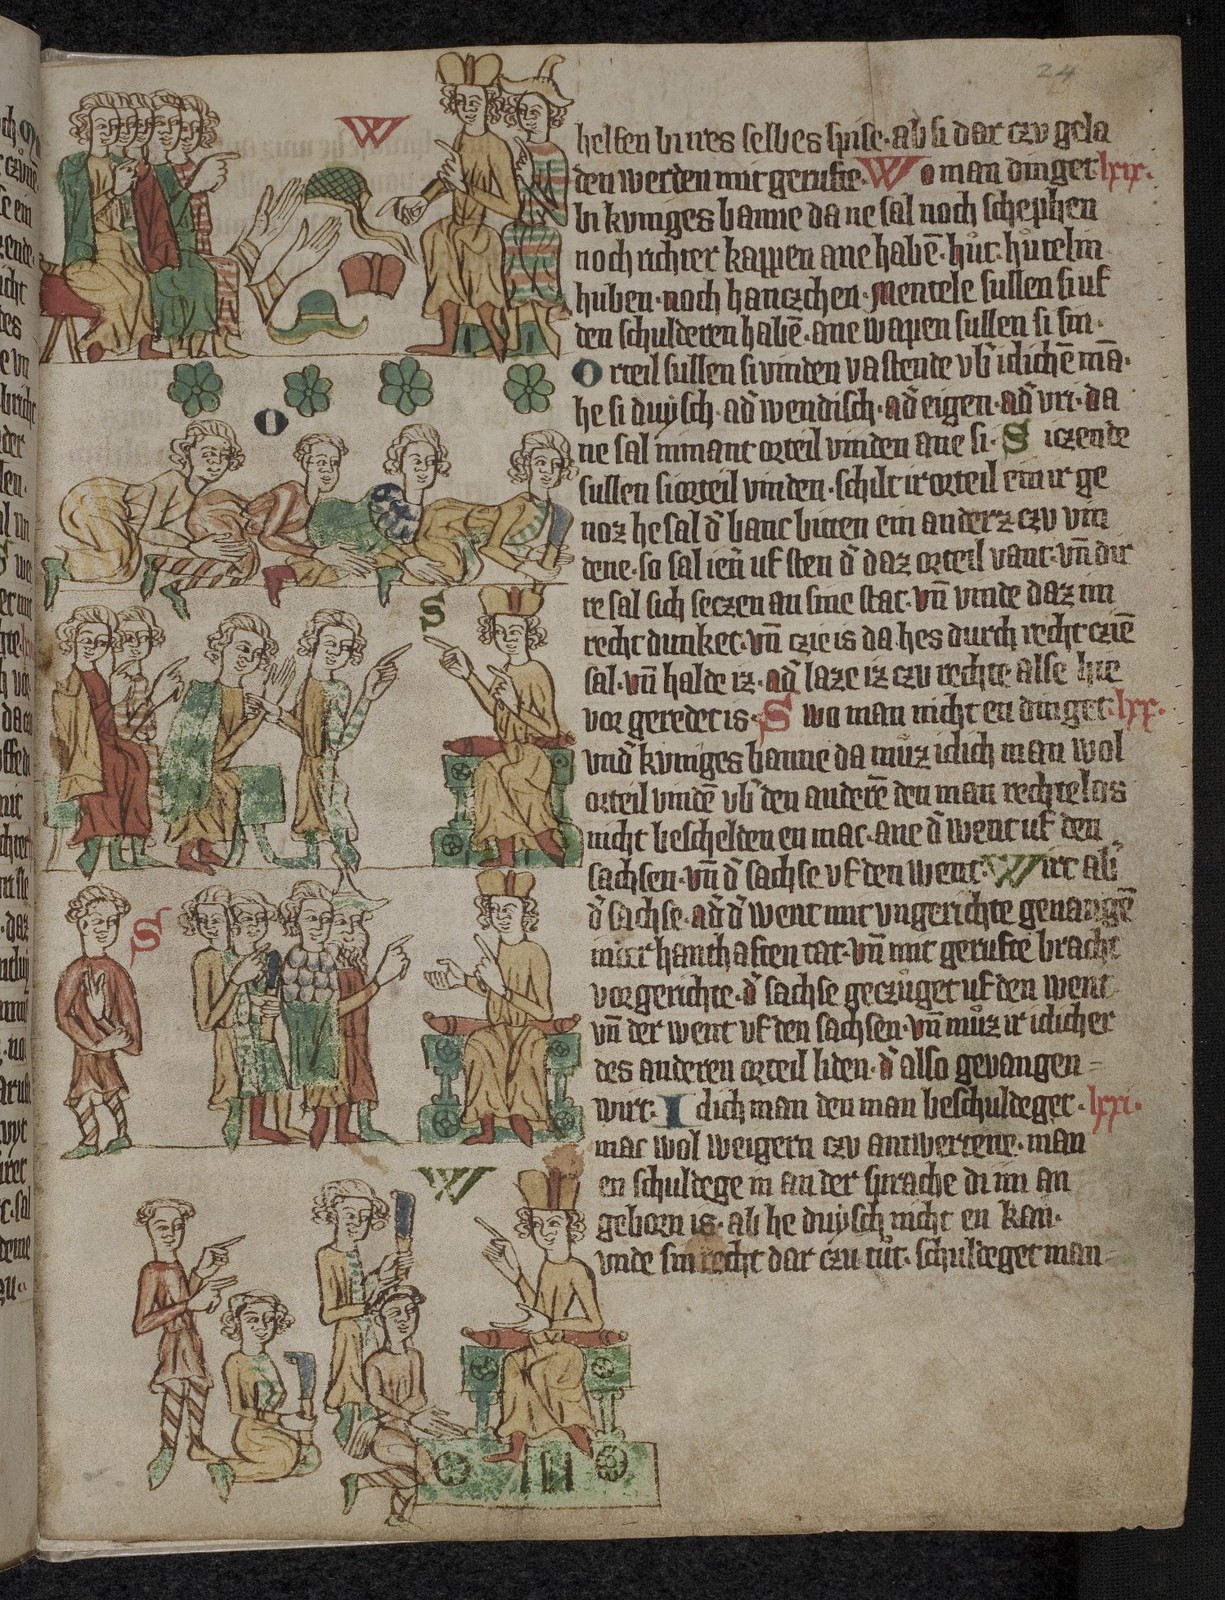 24
W
helfen bi ires selbes spise· ab si dar czu gela
den werden mit gerufte· Wo man dinget· lxix·
bi kuniges banne da ne sal noch schephen
noch richter kappen ane habē· hůt· hůtelin
huben· noch hanczchen· Mentele sullen si uf
den schulderen habē· ane wapen sullen si sin·
Orteil sullen si vinden vastende vb' idichē mā·
he si duysch· ad' wendisch· ad' eigen· ad' vri· da
ne sal nimant orteil vinden ane si· Siczende
sullen si orteil vinden· schilt ir orteil ein ir ge
noz he sal d' banc bitten ein anderz czu vin
dene· so sal ien' uf sten d' daz orteil vant· vn̄ dir
re sal sich seczen an sine stat· vn̄ vinde daz im
recht dunket· vn̄ czie is da hes durch recht cziē
sal· vn̄ halde iz· ad' laze iz czu rechte alse hie
vor geredet is· Swo man nicht en dinget· lxx·
vnd' kuniges banne da můz idich man wol
orteil vindē vb' den anderē den man rechtelos
nicht beschelden en mac· ane d' went uf den
sachsen· vn̄ d' sachse uf den went· Wirt ab'
d' sachse· ad' d' went mit vngerichte gevangē
mitt hanthaften tat· vn̄ mit gerufte bracht
vor gerichte· d' sachse geczůget uf den went
vn̄ der went uf den sachsen· vn̄ můz ir idicher
des anderen orteil liden· d' also gevangen
wirt· Idich man den man beschuldeget· lxxi·
mac wol weigern czu antwertene· man
en schuldege in an der sprache di im an
geborn is· ab he duysch nicht en kan·
vnde sin recht dar czu tůt· schuldeget man
O
S
S
W